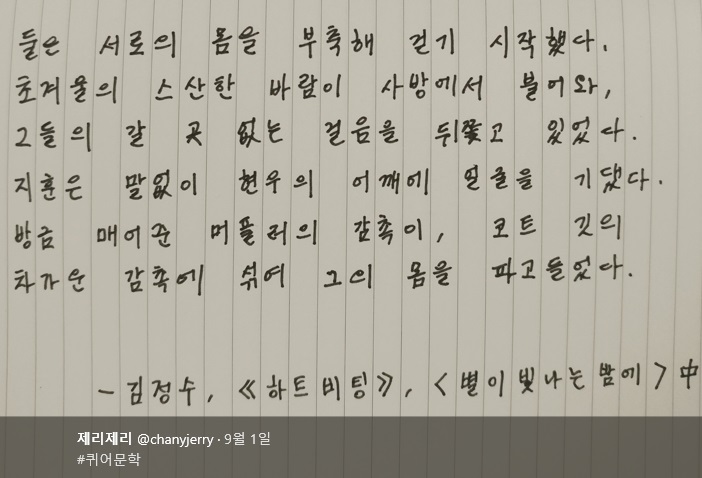 둘은 서로의 몸을 부축해 걷기 시작했다.
초겨울의 스산한 바람이 사방에서 불어와,
그들의 갈 곳 없는 걸음을 뒤쫓고 있었다.
지훈은 말없이 현우의 어깨에 얼굴을 기댔다.
방금 매어준 머플러의 감촉이, 코트 깃의
차가운 감촉에 섞여 그의 몸을 파고들었다.
- 김정수, 《하트비팅》, <별이 빛나는 밤에> 中
제리제리 @chanyjerry · 9월 1일
#퀴어문학